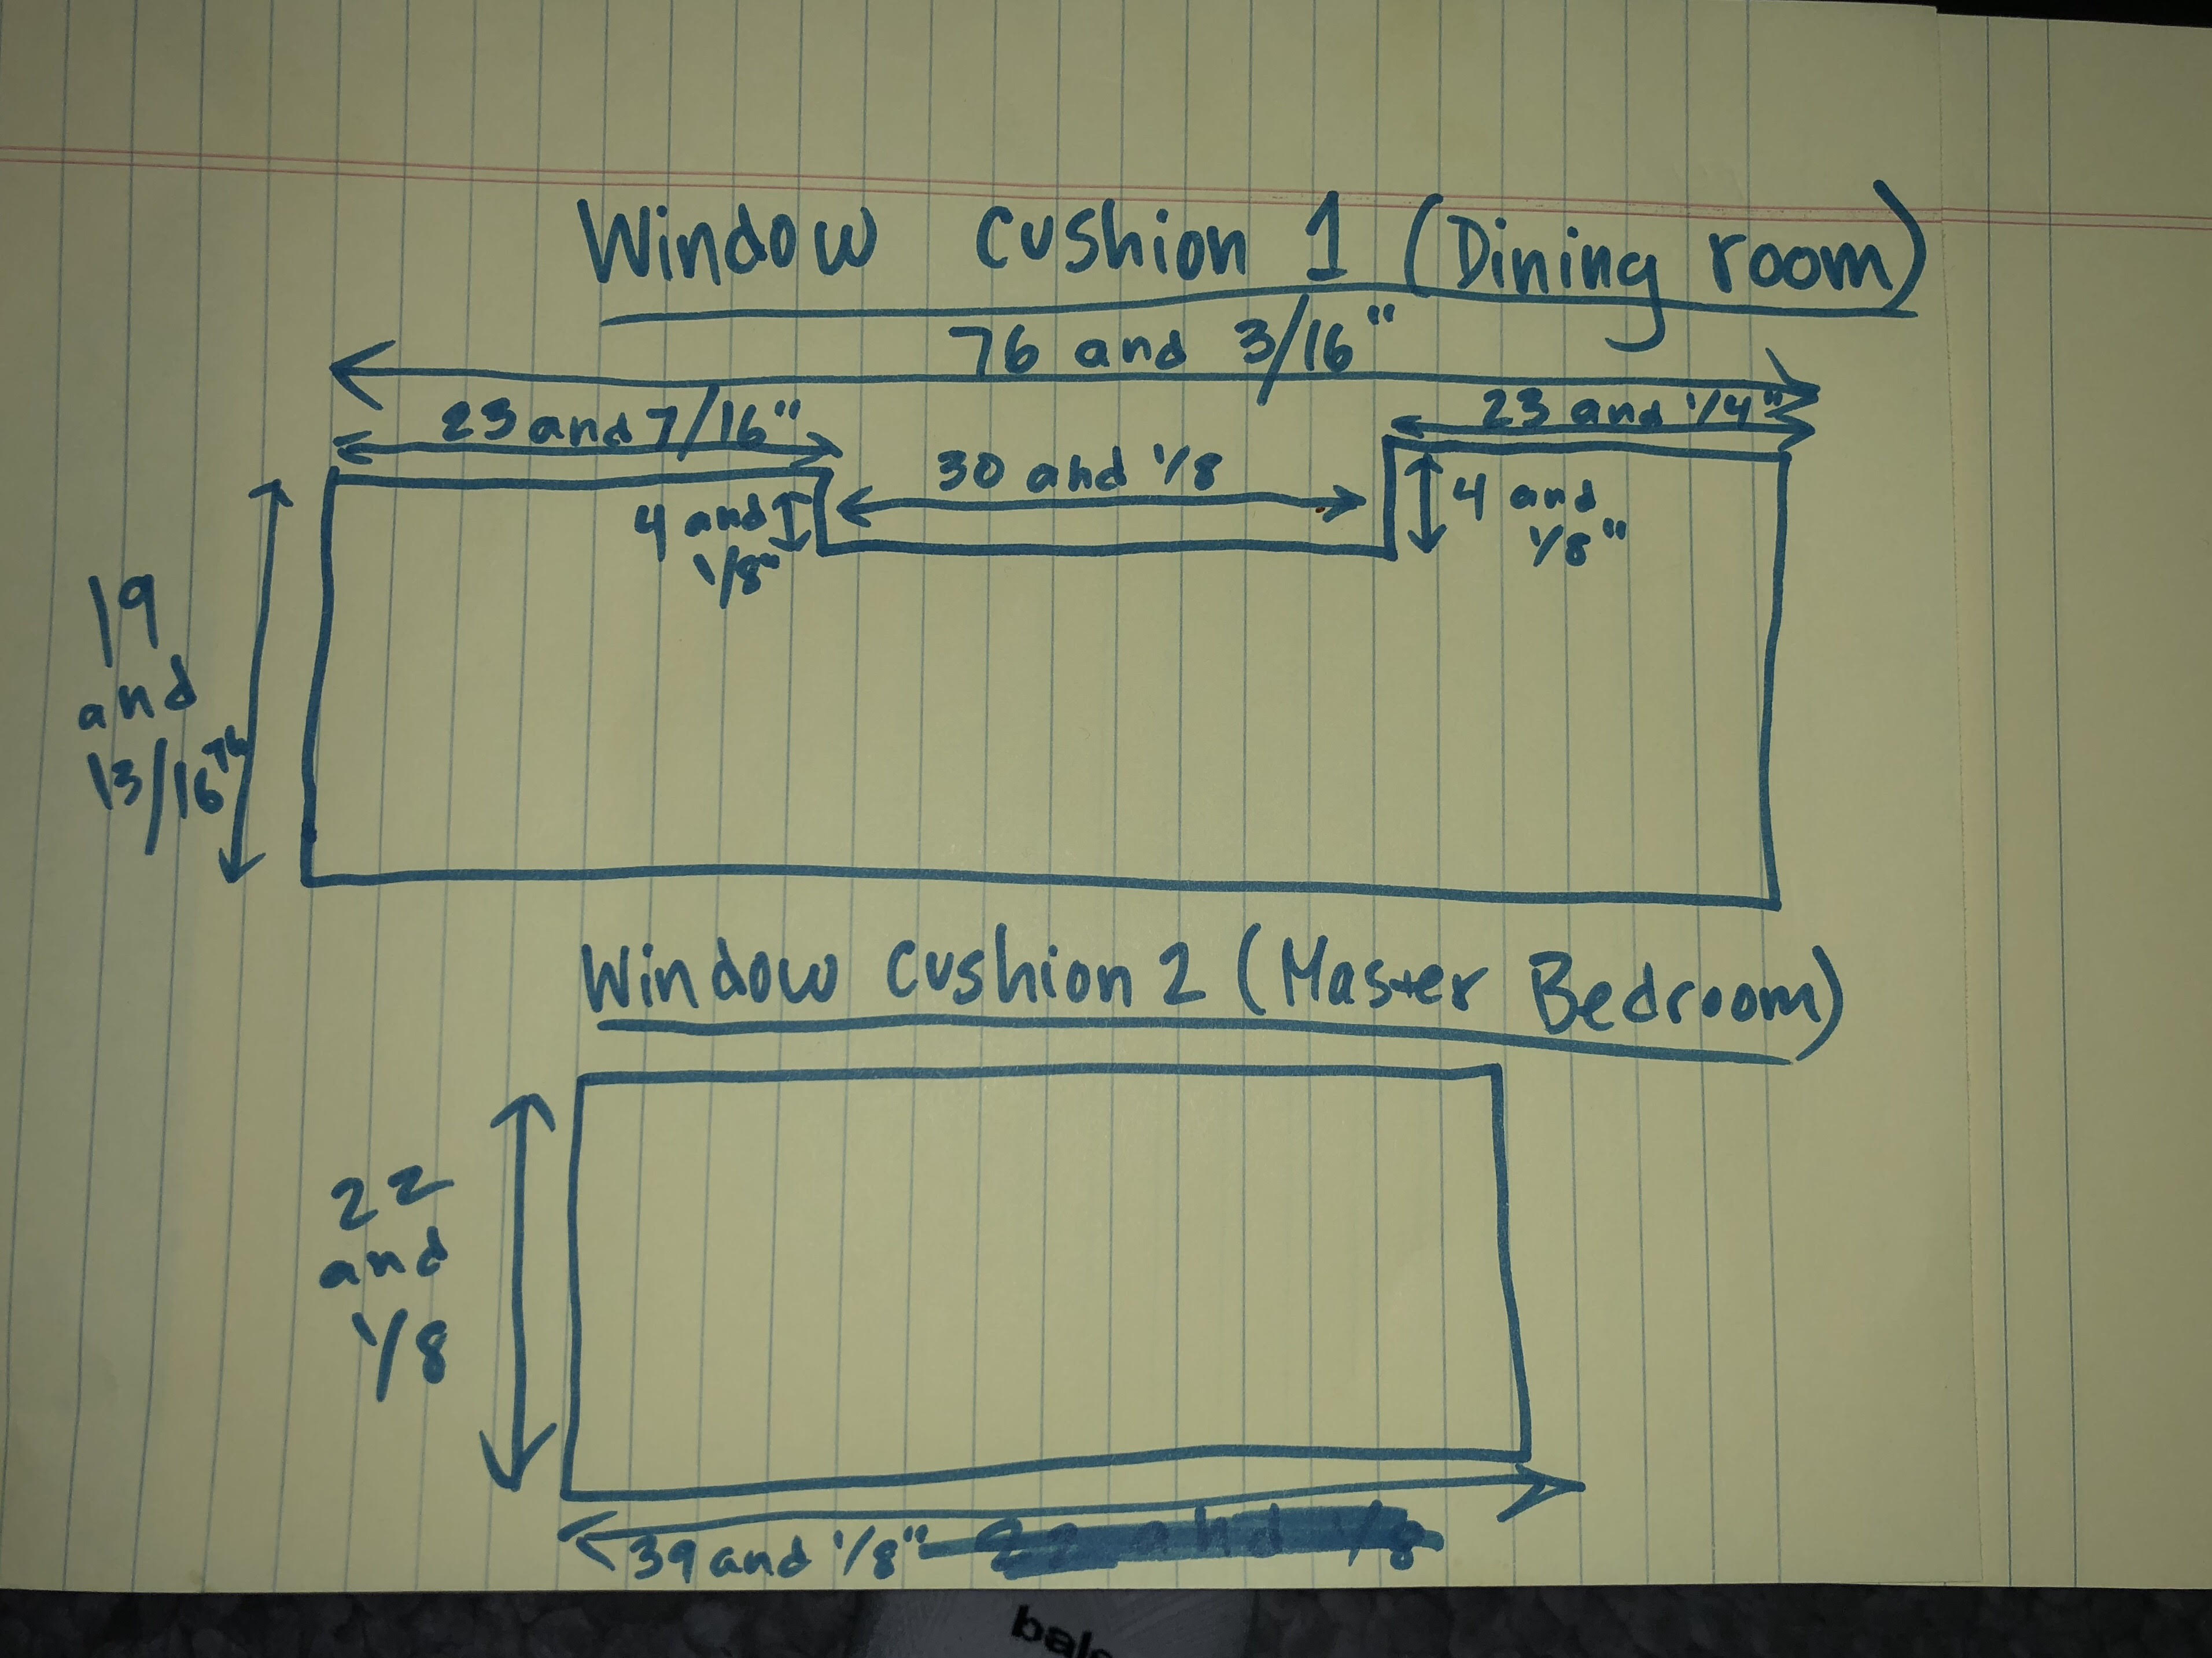 Window Cushion 1 (Dining room)
76 and 3/16"
23 and 7/16"
23 and 1/4"
30 and 1/8
4 and
1/8"
4 and
1/8"
19
and
13/16th
Window Cushion 2 (Master Bedroom)
22
and
1/8
39 and 1/8" 22 and 1/8